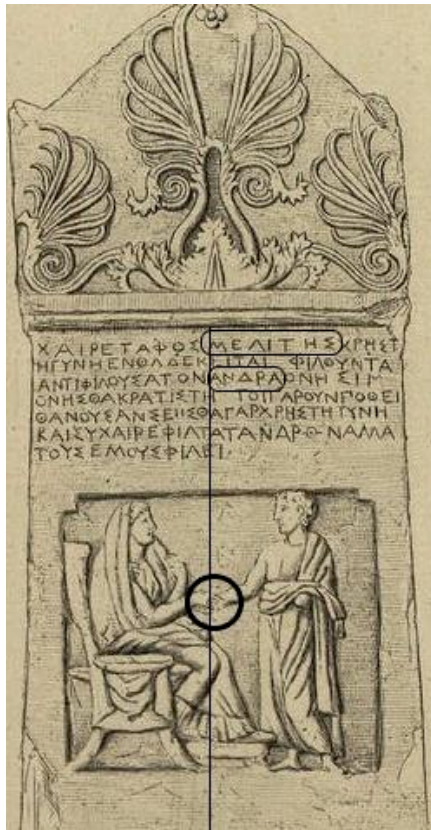 ΧΑΙΡΕΤΑΦΟΣΜΕΛΙΤΗΣΧΡΗΣΤ
ΗΓΥΝΗΕΝΘΑΔΕΚΕΙΤΑΙΦΙΛΟΥΝΤΑ
ΑΝΤΙΦΙΛΟΥΣΑΤΟΝΑΝΔΡΑΟΝΗΣΙΜ
ΟΝΗΣΘΑΚΡΑΤΙΣΤΗΤΟΙΓΑΡΟΥΝΠΟΘΕΙ
ΘΑΝΟΥΣΑΝΣΕΗΣΘΑΓΑΡΧΡΗΣΤΗΓΥΝΗ
ΚΑΙΣΥΧΑΙΡΕΦΙΛΤΑΤΑΝΔΡΩΝΑΛΛΑ
ΤΟΥΣΕΜΟΥΣΦΙΛΕΙ